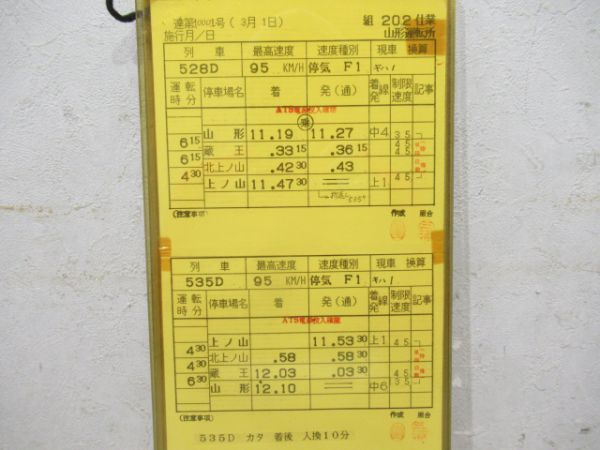 達第10001号( 3月 1日)
組 202仕業
施行月/日 山形運転所
列 車 最高速度 速度種別 現車 換算
528D 95 KM/H 停気 F1 キハ1
運転時分 停車場名 着 発(通) 着発線 制限速度 記事
ATS電源投入確認
乗
山 形 11.19 11.27 中4 35
6 15 45
蔵 王 .33 15 .36 15 45
6 15
北上ノ山 .42 30 .43
4 30 45
上ノ山 11.47 30 == 上1
(注意事項) 作成 照合
列 車 最高速度 速度種別 現車 換算
535D 95 KM/H 停気 F1 キハ1
運転時分 停車場名 着 発(通) 着発線 制限速度 記事
ATS電源投入確認
上ノ山 11.53 30 上1 45
4 30
北上ノ山 .58 .58 30
4 30
蔵 王 12.03 .03 30 45
6 30 35
山 形 12.10 == 中6
(注意事項) 作成 照合
535D カタ 着後 入換10分